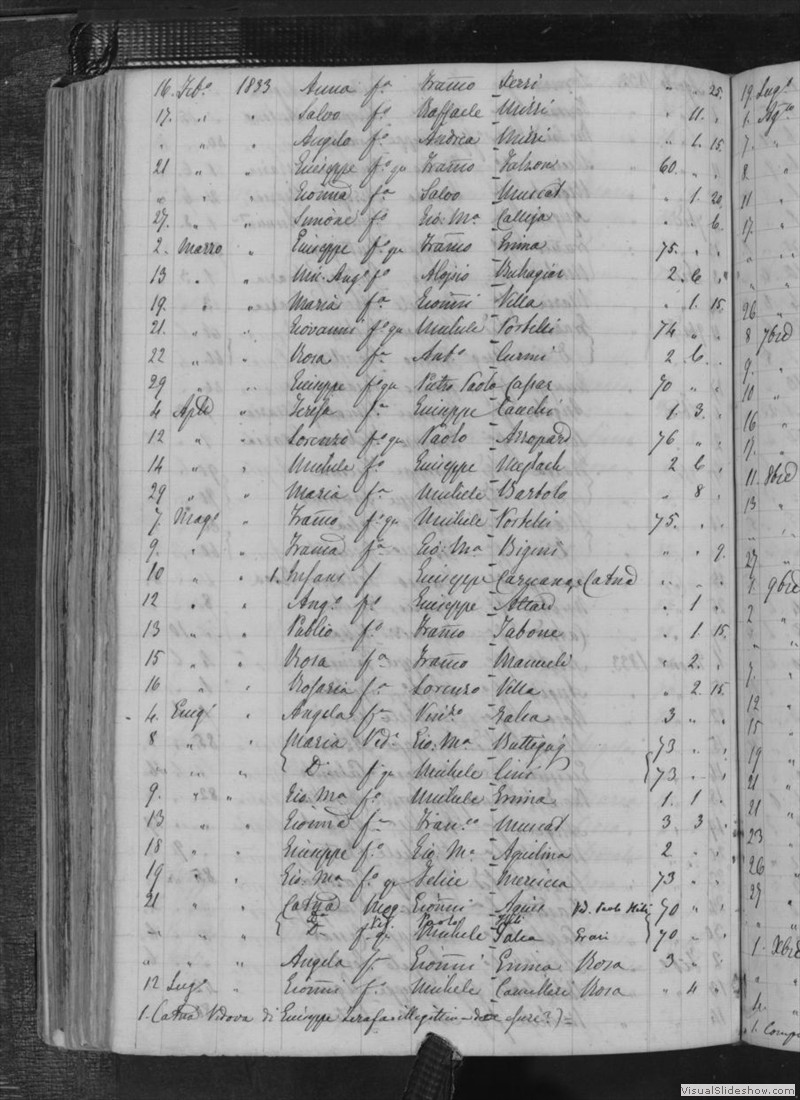 16. Febo 1833 Anna fa Franco Ferri " " 25.
17. " " Salvo fo Raffaele Mirri " 11. "
" " " Angelo fo Andrea Mirri " 1. 15.
21 " " Giuseppe fo qu Franco Falzon 60. " "
" " " Gionna fa Salvo Muscat " 1. 20.
27. " " Simone fo Gio: Ma Calleja " " 6.
2. Marzo " Giuseppe fo qu Franco Grima 75. " "
13 " " Mic. Ango fo Aloisio Buhagiar 2. 6. "
19. " " Maria fa Gionni Villa " 1. 15.
21. " " Giovanni fo qu Michele Portelli 74 " "
22 " " Rosa fa Anto Curmi 2 6. "
29 " " Giuseppe fo qu Pietro Paolo Caffar 70 " "
4 Aple " Teresa fa Giuseppe 1. 3. "
12 " " Lorenzo fo qu Paolo Azzopard 76 " "
14 " " Michele fo Giuseppe Mejlach 2 6 "
29 " " Maria fa Michele Bartolo " 8 "
7. Mago " Franco fo qu Michele Portelli 75. " "
9. " " Franca fa Gio: Ma " " 9.
10 " " 1. Infans f Giuseppe Caruana, e Catna " " "
12 " " Ango fo Giuseppe Attard " 1 "
13 " " Publio fo Franco Tabone " 1. 15.
15 " " Rosa fa Franco Manueli " 2. "
16 " " Rosaria fa Lorenzo Villa " 2. 15.
4. Giugo " Angela fa Vinzo Galea 3 " "
8 " " Maria Veda Gio: Ma Buttigieg 73 " "
" " " Da f qu Michele 73 " "
9. " " Gio. Ma fo Michele Grima 1. 1 "
13 " " Gionna fa Franco Muscat 3 3 "
18 " " Giuseppe fo Gio Ma Aquilina 2 " "
19 " " Gio. Ma fo qu Felice Mercieca 73 " "
21 " " Catna Mog. Gionni Agius Vd. Paolo Hili 70 " "
Da Ved. Paolo Hili
" " " Da f qu Michele Galea 70 " "
" " " Angela fa Gionni Grima Rosa 3 " "
12 Lugo " Gionni fo Michele Camilleri Rosa " 4 "
1. Catna Vedova di Giuseppe
19. Lugo
1. Agto
7. "
8 "
11 "
17. "
26 "
8 7bre
9. "
10 "
16 "
17. "
11. 8bre
13 "
27 "
1. 9bre
2 "
7. "
12 "
15 "
19 "
21 "
21 "
23 "
26 "
27 "
1. Xbre
4. "
VisualSlideshow.com